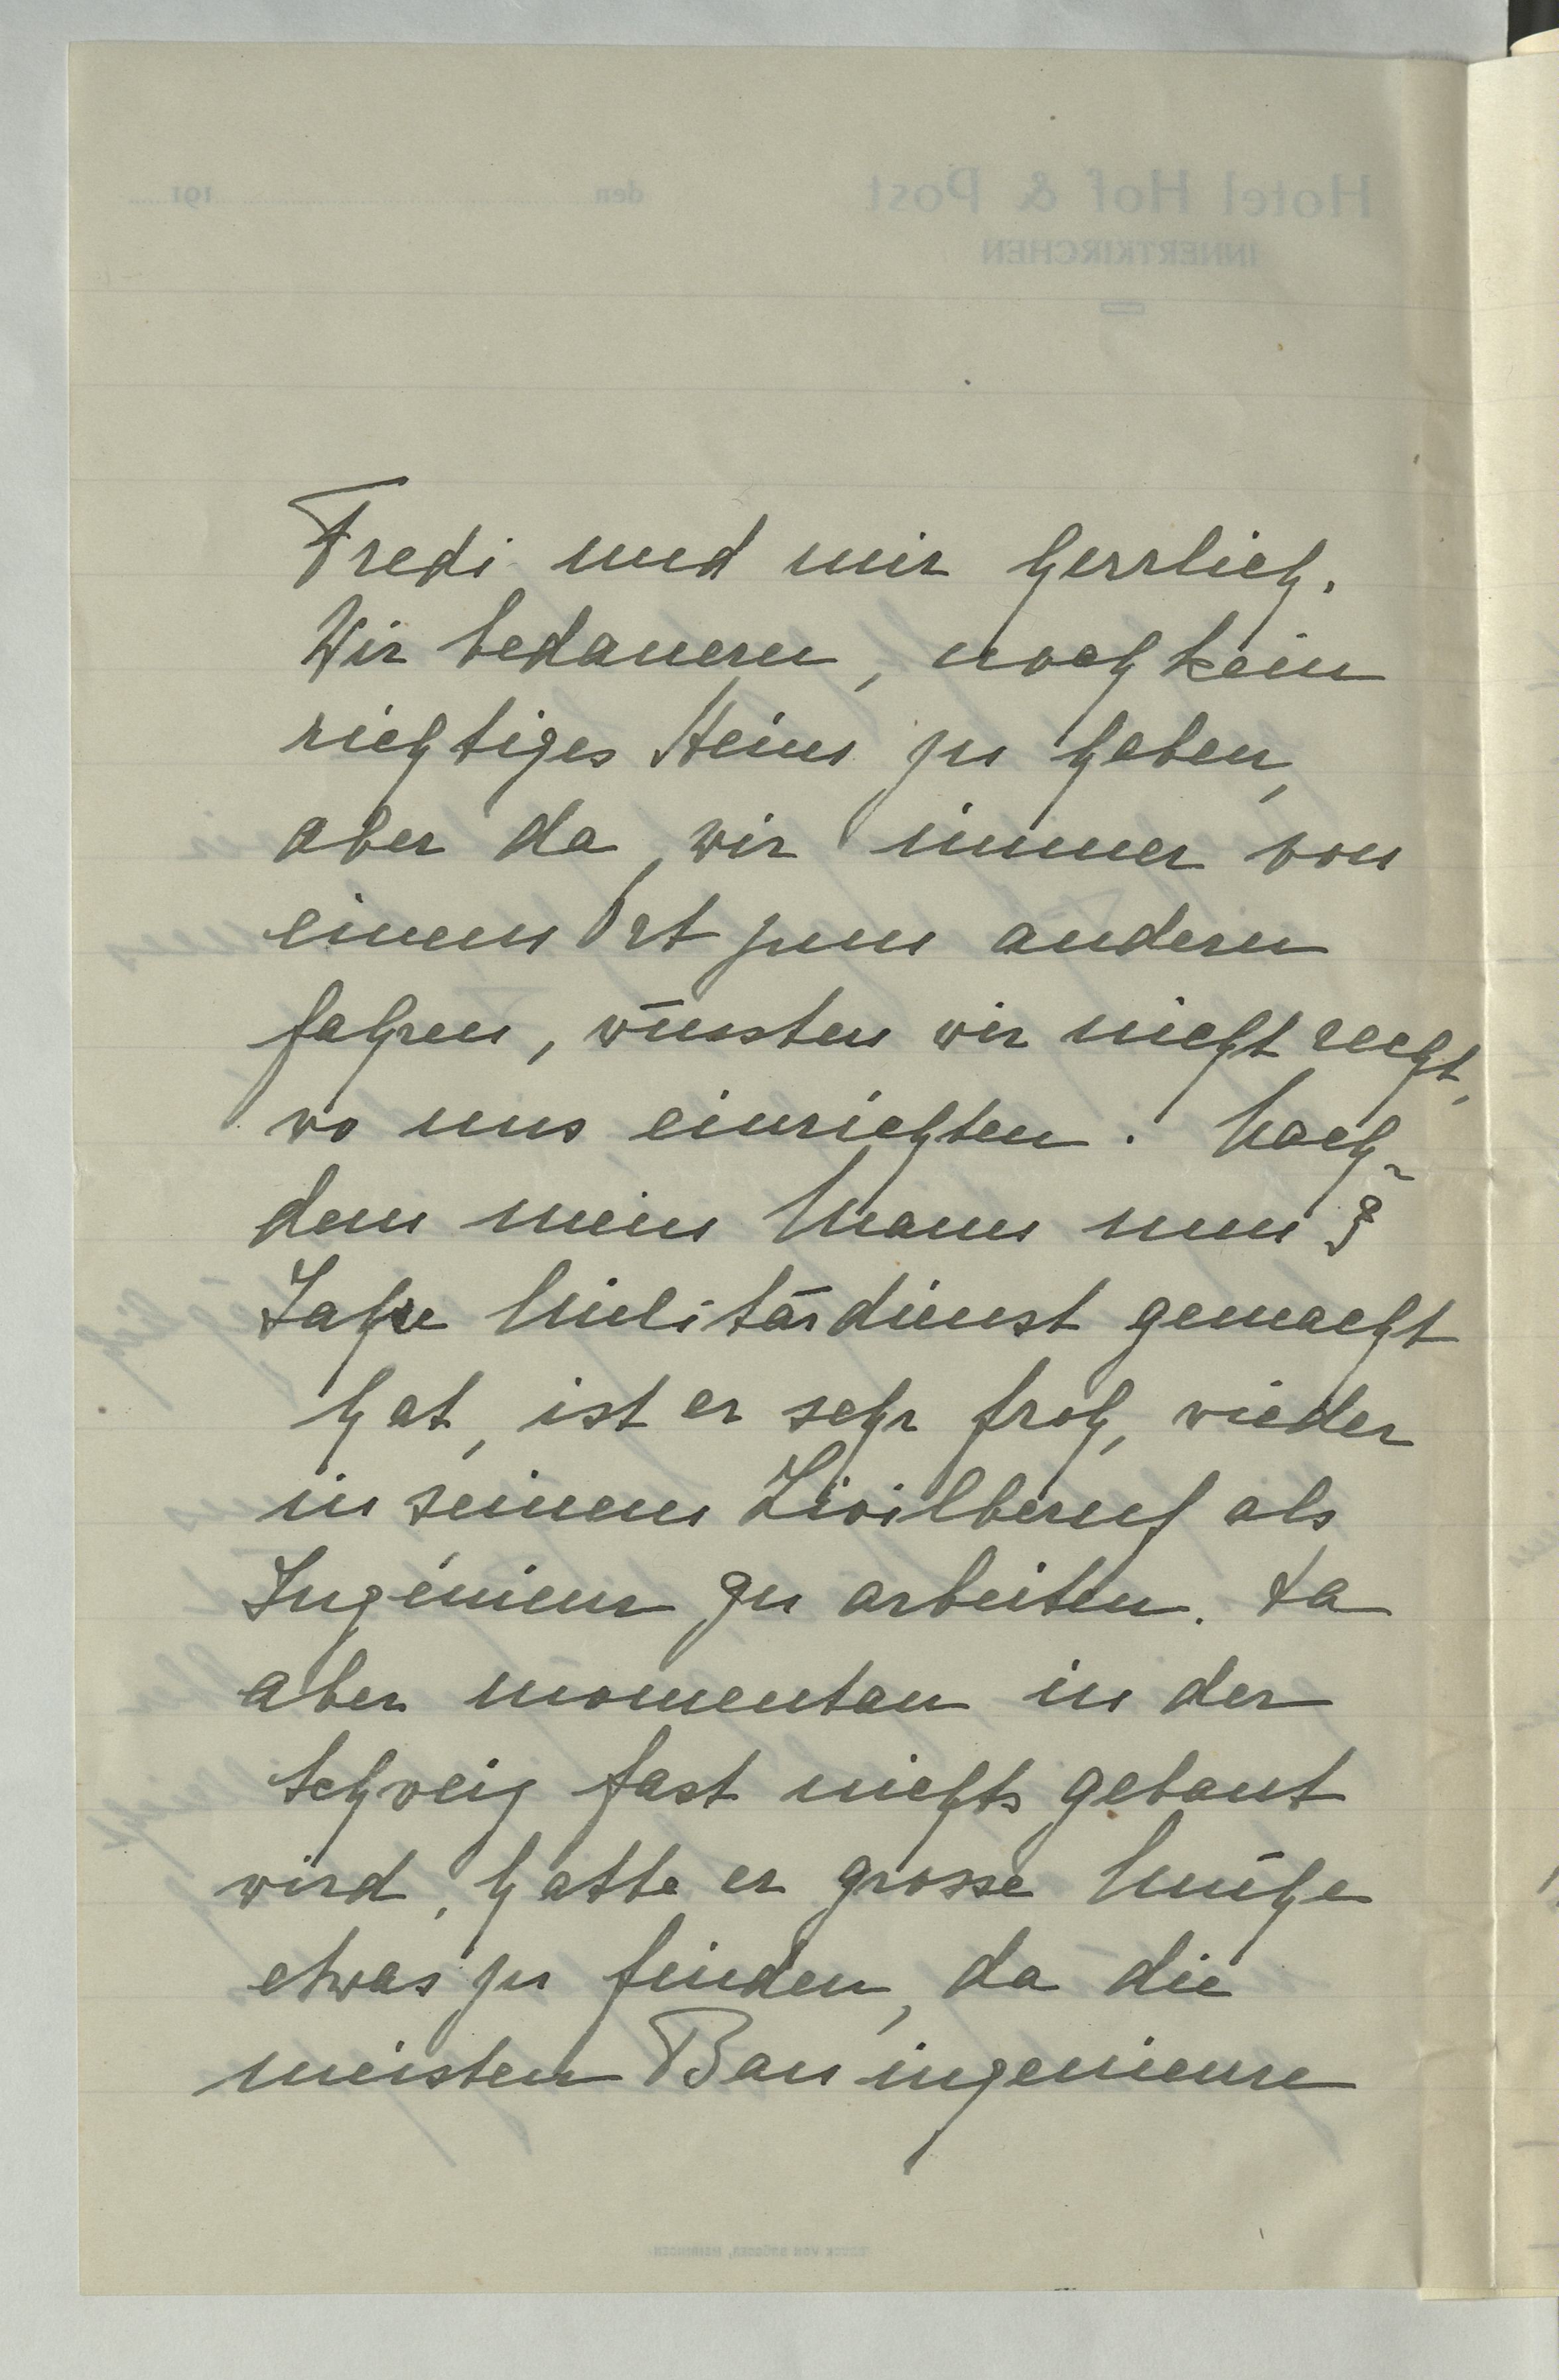 Fredi und mir herrlich.
Wir bedauern, noch kein
richtiges Heim zu haben,
aber da wir immer von
einem Ort zum andern
fahren, wüssten wir nicht recht,
wo uns einrichten. Nach-
dem mein Mann nun
Jahre Militärdienst gemacht
hat, ist er sehr froh, wieder
in seinem Zivilberuf als
Ingénieur zu arbeiten. Da
aber momentan in der
Schweiz fast nichts gebaut
wird, hatte er grosse Mühe
etwas zu finden, da die
meisten Bauingenieure
Hotel Hof & Post
INNERTKIRCHEN
den 191